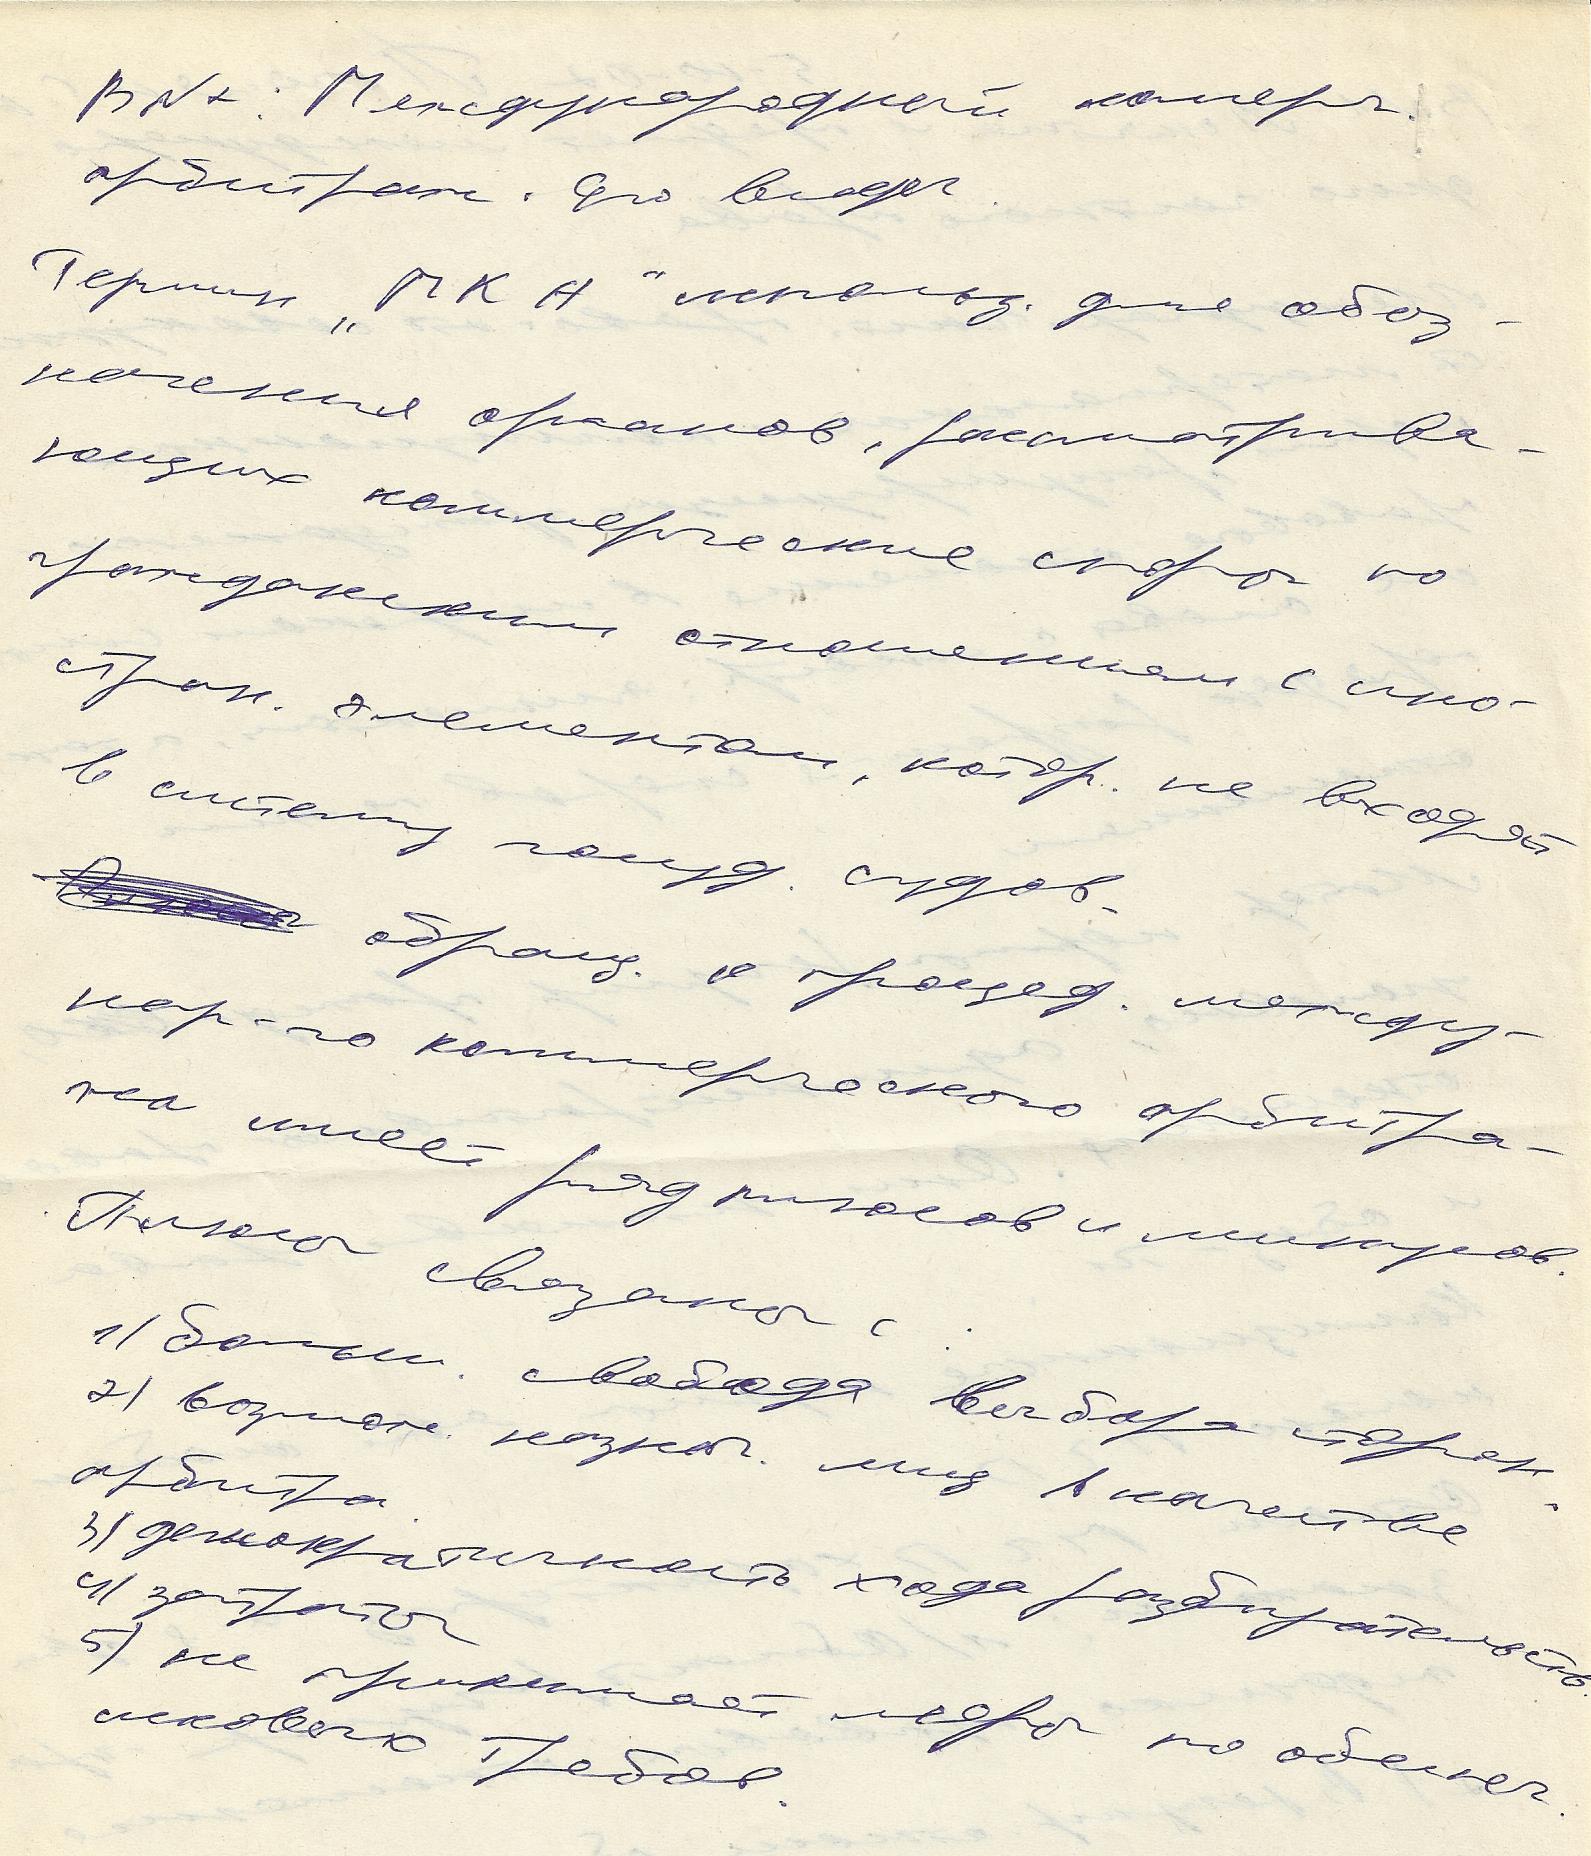 В №2: Международный коммерч.
арбитраж. Его виды.
Термин „МКА" использ. для обоз-
начения органов, рассматрива-
ющих коммерческие споры по
гражданским отношениям с ино-
стран. элементом, котор. не входят
в систему госуд. судов.
обращ. к процед. между-
нар-го коммерческого арбитра-
жа имеет ряд плюсов и минусов.
Плюсы связаны с
1) больш. свобода выбора сторон.
2) возмож. назнач. лиц в качестве
арбитра
3) демократичность хода разбирательств.
4) затраты
5) не принимает меры по обеспеч.
исковых требов.